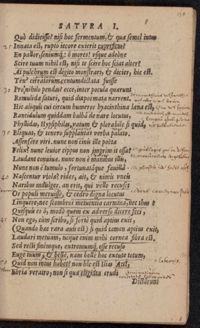 SATYRA I.
Quò didicisse? nisi hoc fermentum, & quæ semel intus
Innata est, rupto iecore exierit caprificus?
En pallor, seniumq;: ô mores! vsque adeóne
Scire tuum nihil est, nisi te scire hoc sciat alter?
At pulchrum est digito monstrari, & dicier, hic est.
Ten' cirratorum centum dictata fuisse
Pro nihilo pendas? ecce, inter pocula quærunt
Romulidæ saturi, quid dia poemata narrent.
Hic aliquis cui circum humeros hyacinthina læna est,
Rancidulum quiddam balba de nare locutus,
Phyllidas, Hypsipylas, vatum & plorabile si quid,
Eliquat, & tenero supplantat verba palato.
Assensêre viri. nunc non cinis ille poëtæ
Felix? nunc leuior cippus non imprimit ossa?
Laudant conuiuæ. nunc non è manibus illis,
Nunc non è tumulo, fortunataque fauilla
Nascentur violæ? rides, ait, & nimis vncis
Naribus indulges. an erit, qui velle recuset
Os populi meruisse, & cedro digna locutus
Linquere, nec scombros metuentia carmina, nec thus?
Quisquis es ô, modò quem ex aduerso dicere feci,
Non ego, cùm scribo, si fortè quid aptius exit,
(Quando hæc rara auis est) si quid tamen aptius exit,
Laudari metuam, neque enim mihi cornea fibra est,
Sed recti finémque, extremúmque esse recuso
Euge tuum, & belle, nam belle hoc excute totum,
Quid non intus habet? non hîc est Ilias Acci
Ebria veratro, non si qua elegidia crudi
Dictarunt